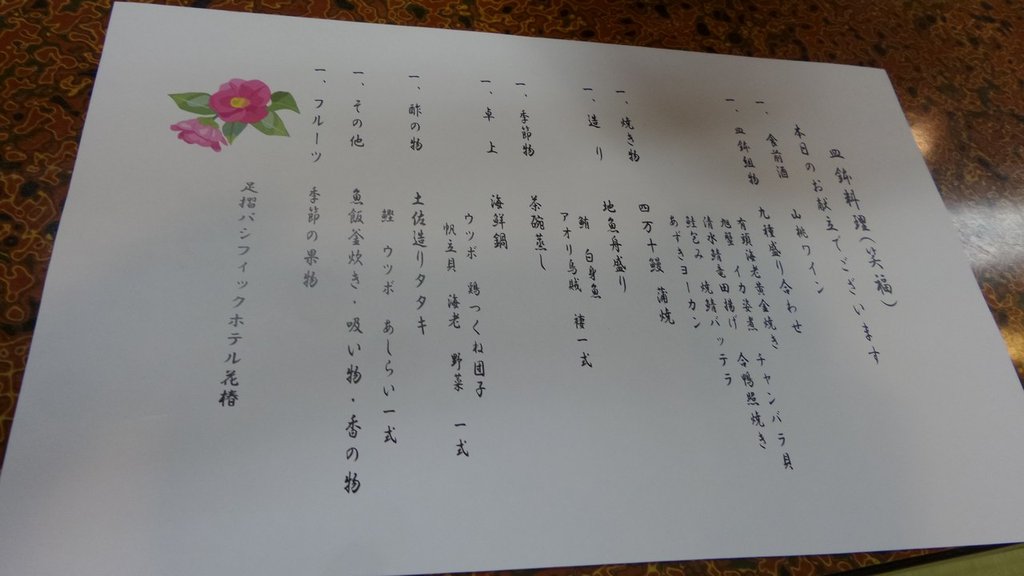 皿鉢料理(笑福)
本日のお献立でございます
一、食前酒 山桃ワイン
一、皿鉢組物 九種盛り合わせ
有頭海老黄金焼き チャンバラ貝
旭蟹 イカ姿煮 合鴨照焼き
清水鯖竜田揚げ 焼鯖バッテラ
鮭包み
あずきヨーカン
一、焼き物 四万十鰻 蒲焼
一、造り 地魚舟盛り
鮪 白身魚
アオリ烏賊 褄一式
一、季節物 茶碗蒸し
一、卓上 海鮮鍋
ウツボ 鶏つくね団子
帆立貝 海老 野菜 一式
一、酢の物 土佐造りタタキ
鰹 ウツボ あしらい一式
一、その他 魚飯釜炊き・吸い物・香の物
一、フルーツ 季節の果物
足摺パシフィックホテル花椿